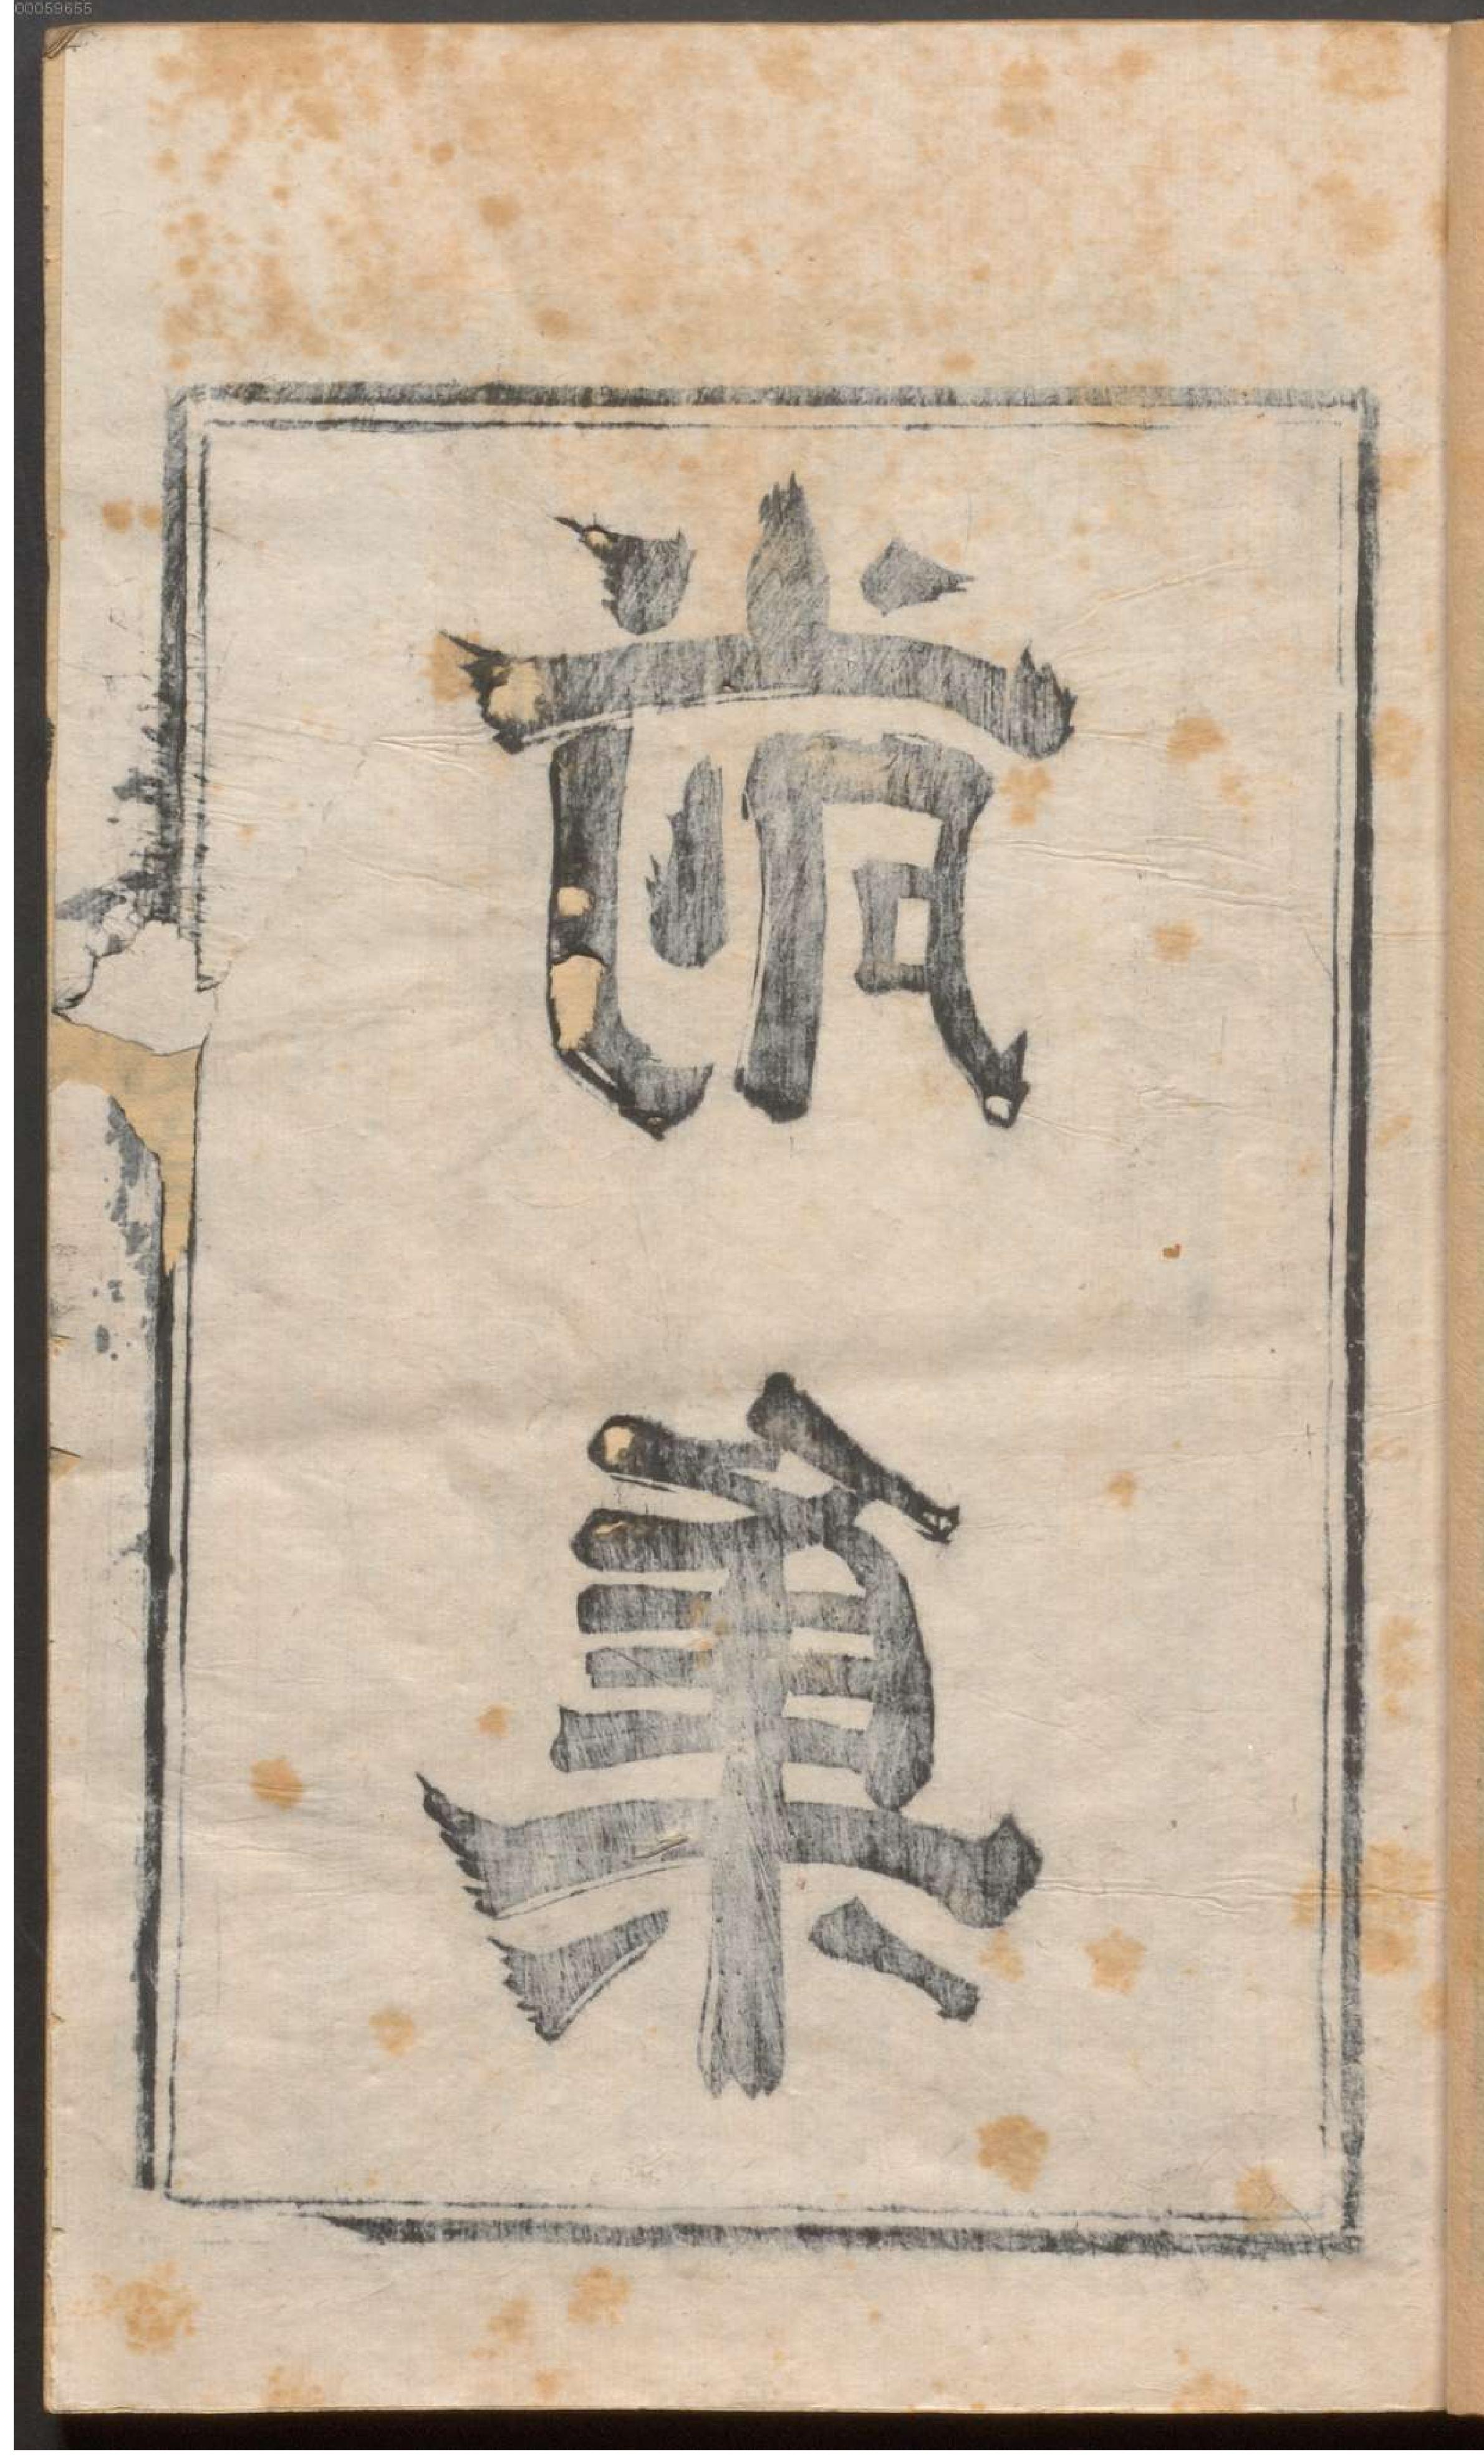 00059655
前
集